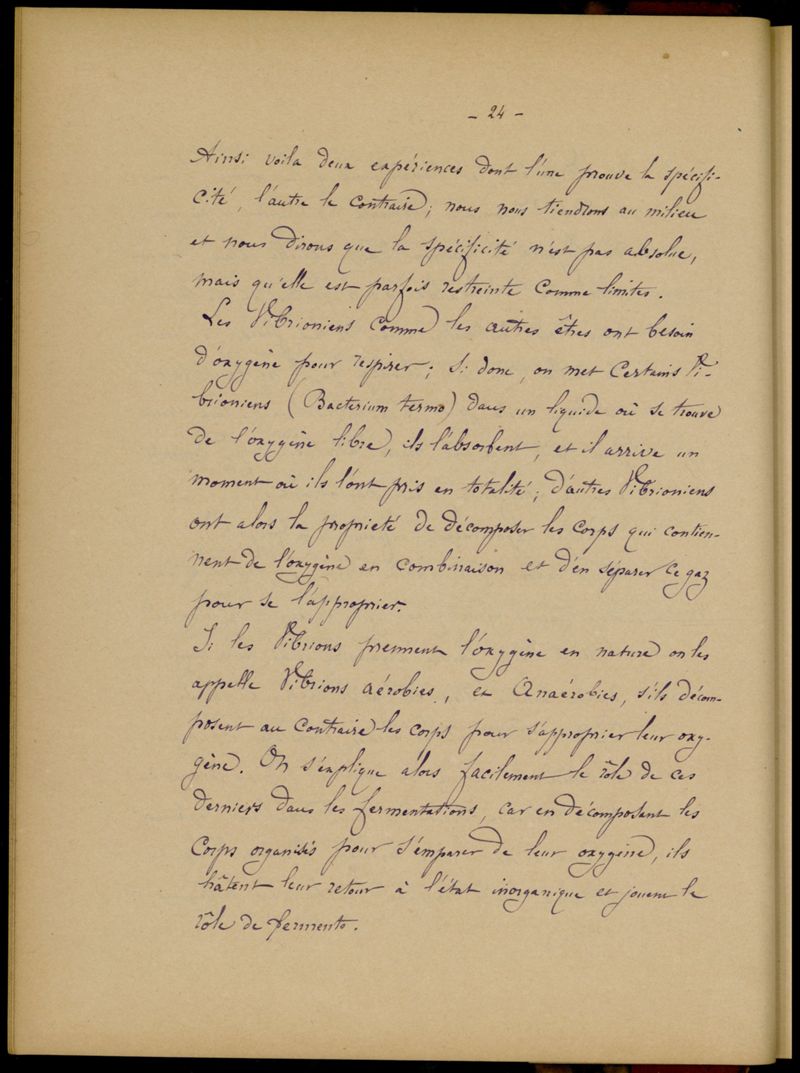 - 24 -
Ainsi voila deux expériences dont l'une prouve la spécifi-
cité, l'autre le contraire; nous nous tiendrons au milieu
et nous dirons que la spécificité n'est pas absolue,
mais qu'elle est parfois restreinte comme limites.
Les Vibrioniens comme les autres êtres ont besoin
d'oxygène pour respirer; si donc, on met certains Vi-
brioniens (Bacterium termo) dans un liquide où se trouve
de l'oxygène libre, ils l'absorbent, et il arrive un
moment où ils l'ont pris en totalité; d'autres Vibrioniens
ont alors la propriété de décomposer les corps qui contien-
nent de l'oxygène en combinaison et d'en séparer ce gaz
pour se l'approprier.
Si les Vibrions prennent l'oxygène en nature on les
appelle Vibrions aérobies, et Anaérobies, s'ils décom-
posent au contraire les corps pour s'approprier leur oxy-
gène. On s'explique alors facilement le rôle de ces
derniers dans les fermentations, car en décomposant les
corps organisés pour s'emparer de leur oxygène, ils
hâtent leur retour à l'état inorganique et jouent le
rôle de ferments.